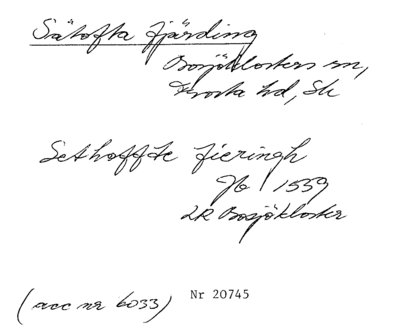 Sätofta fjärding
Bosjöklosters sn,
Frosta hd, Sk
Sethoffte fieringh
Jb 1559
LR Bosjökloster
(acc nr 6033) Nr 20745